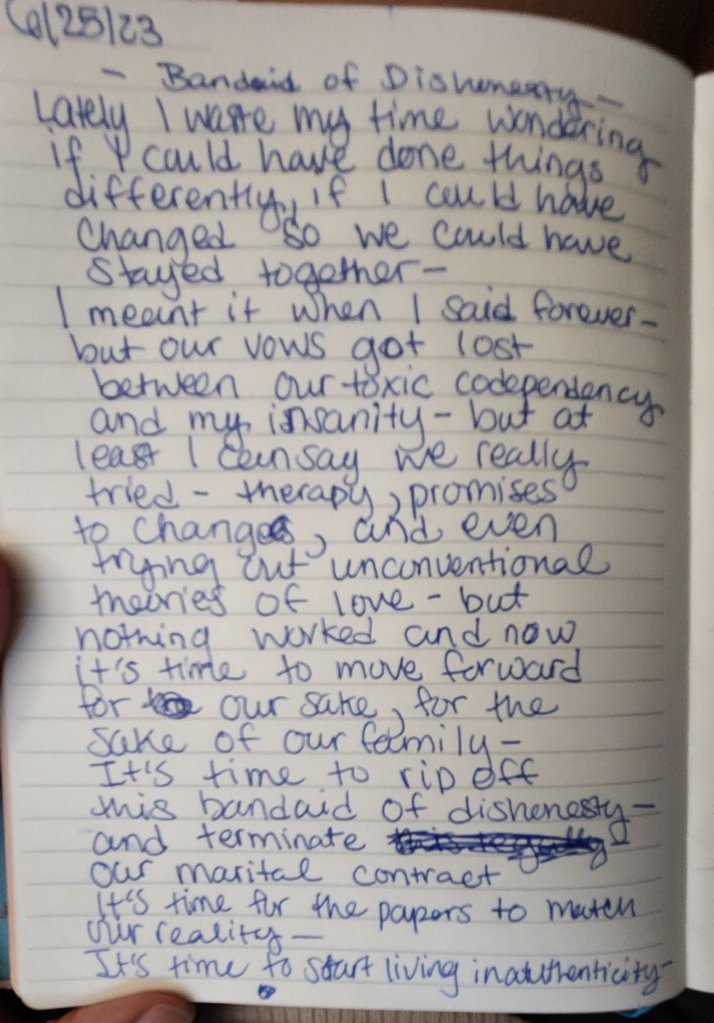 6/25/23
- Bandaid of Dishonesty -
Lately I waste my time wondering
if I could have done things
differently, if I could have
changed so we could have
stayed together-
I meant it when I said forever-
but our vows got lost
between our toxic codependency
and my insanity - but at
least I can say we really
tried - therapy, promises
to change, and even
trying out unconventional
theories of love - but
nothing worked and now
it's time to move forward
for our sake, for the
sake of our family -
It's time to rip off
this bandaid of dishonesty -
and terminate
our marital contract
It's time for the papers to match
our reality -
It's time to start living in authenticity-